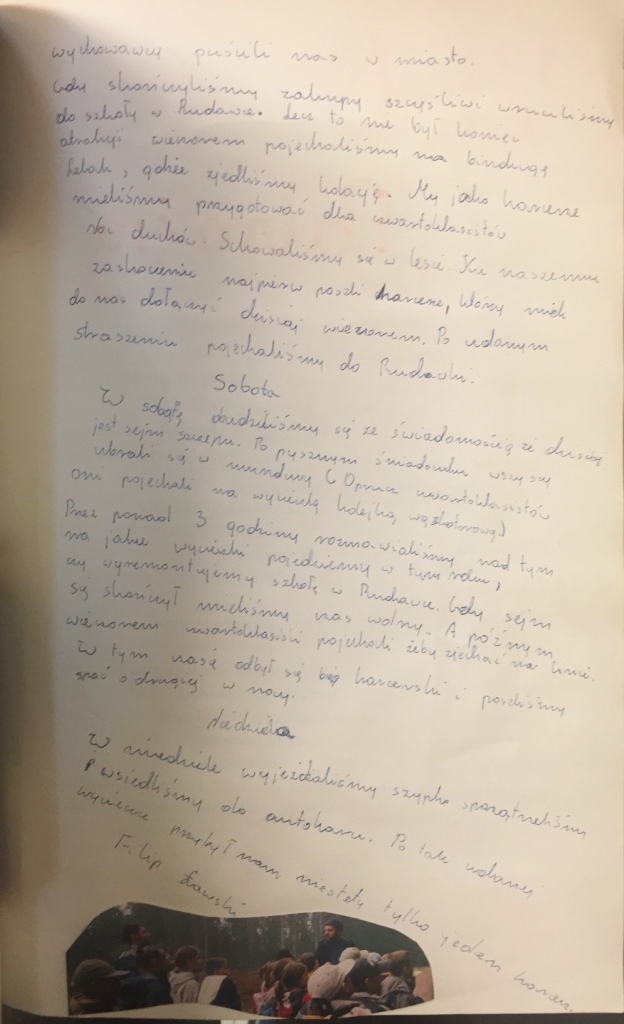 wychowawcy puścili nas w miasto.
Gdy skończyliśmy zakupy szczęśliwi wruciliśmy
do szkoły w Rudawce. Lecz to nie był koniec
atrakcji wieczorem pojechaliśmy na bindugę
, gdzie zjedliśmy kolację. My jako harcerze
mieliśmy przygotować dla czwartoklasistów
noc duchów. Schowaliśmy się w lesie. Ku naszemu
zaskoczeniu najpierw poszli harcerze, którzy mieli
do nas dołączyć dzisiaj wieczorem. Po udanym
straszeniu pojechaliśmy do Rudawki.
Sobota
W sobotę obudziliśmy się ze świadomością że dzisiaj
jest sejm szczepu. Po pysznym śniadanku wszyscy
ubrali się w mundury (Oprucz czwartoklasistów
oni pojechali na wycieczkę kolejką wązkotorową.)
Przez ponad 3 godziny rozmawialiśmy nad tym
na jakie wycieczki pojedziemy w tym roku,
czy wyremontujemy szkołę w Rudawce. Gdy sejm
się skończył mieliśmy czas wolny. A późnym
wieczorem czwartoklasiści pojechali żeby zjechać na linie.
W tym czasie odbył się bieg harcerski i poszliśmy
spać o drugiej w nocy.
Niedziela
W niedziele wyjeżdżaliśmy szypko sprzątneliśmy
i wsiedliśmy do autokaru. Po tak udanej
wycieczce przybył nam niestety tylko jeden harcerz.
Filip Ławski